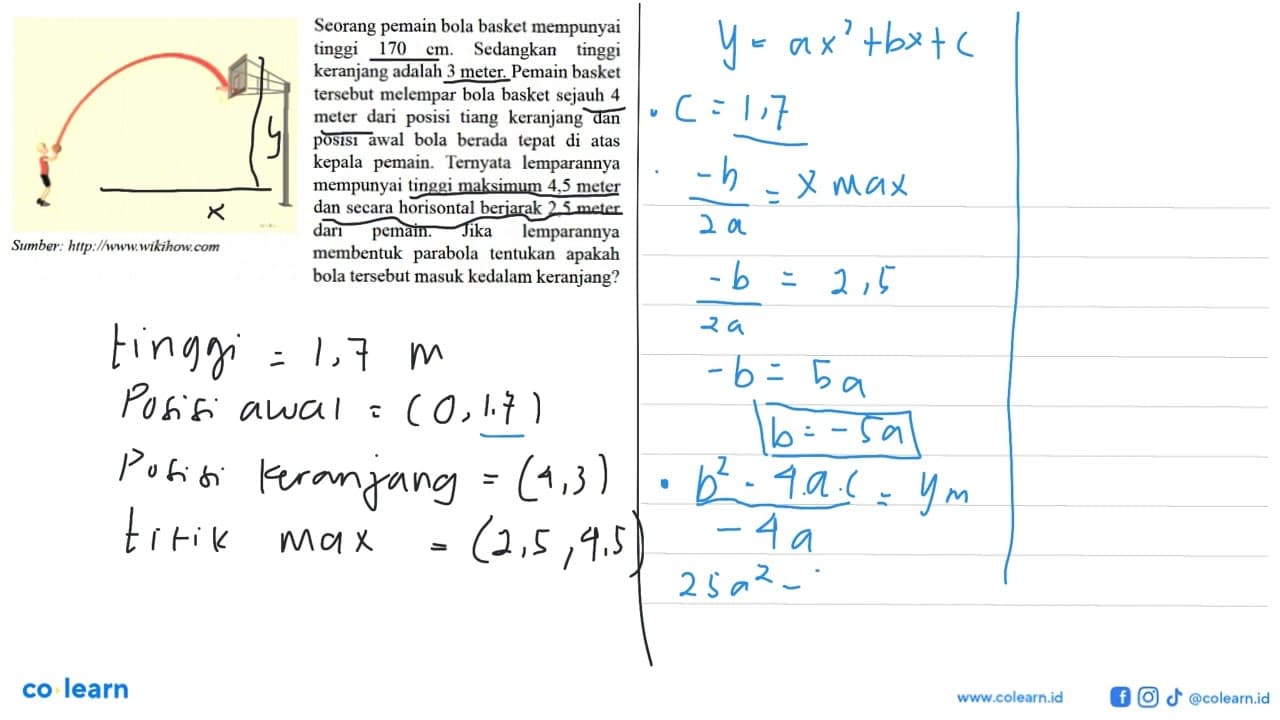 Seorang pemain bola basket mempunyai
tinggi 170 cm. Sedangkan tinggi
keranjang adalah 3 meter. Pemain basket
tersebut melempar bola basket sejauh 4
meter dari posisi tiang keranjang dan
posisi awal bola berada tepat di atas
kepala pemain. Ternyata lemparannya
mempunyai tinggi maksimum 4,5 meter
dan secara horisontal berjarak 2,5 meter
dari pemain. Jika lemparannya
membentuk parabola tentukan apakah
bola tersebut masuk kedalam keranjang?
y
x
Sumber: http://www.wikihow.com
tinggi = 1,7 m
Posisi awal = (0,1.7)
Posisi keranjang = (4,3)
titik max = (2,5,4,5)
y = ax² + bx + c
• c = 1,7
• -b/2a = x max
-b/2a = 2,5
-b = 5a
b = -5a
• b² - 4.a.c/-4a = ym
25a² -
co learn
www.colearn.id
@colearn.id